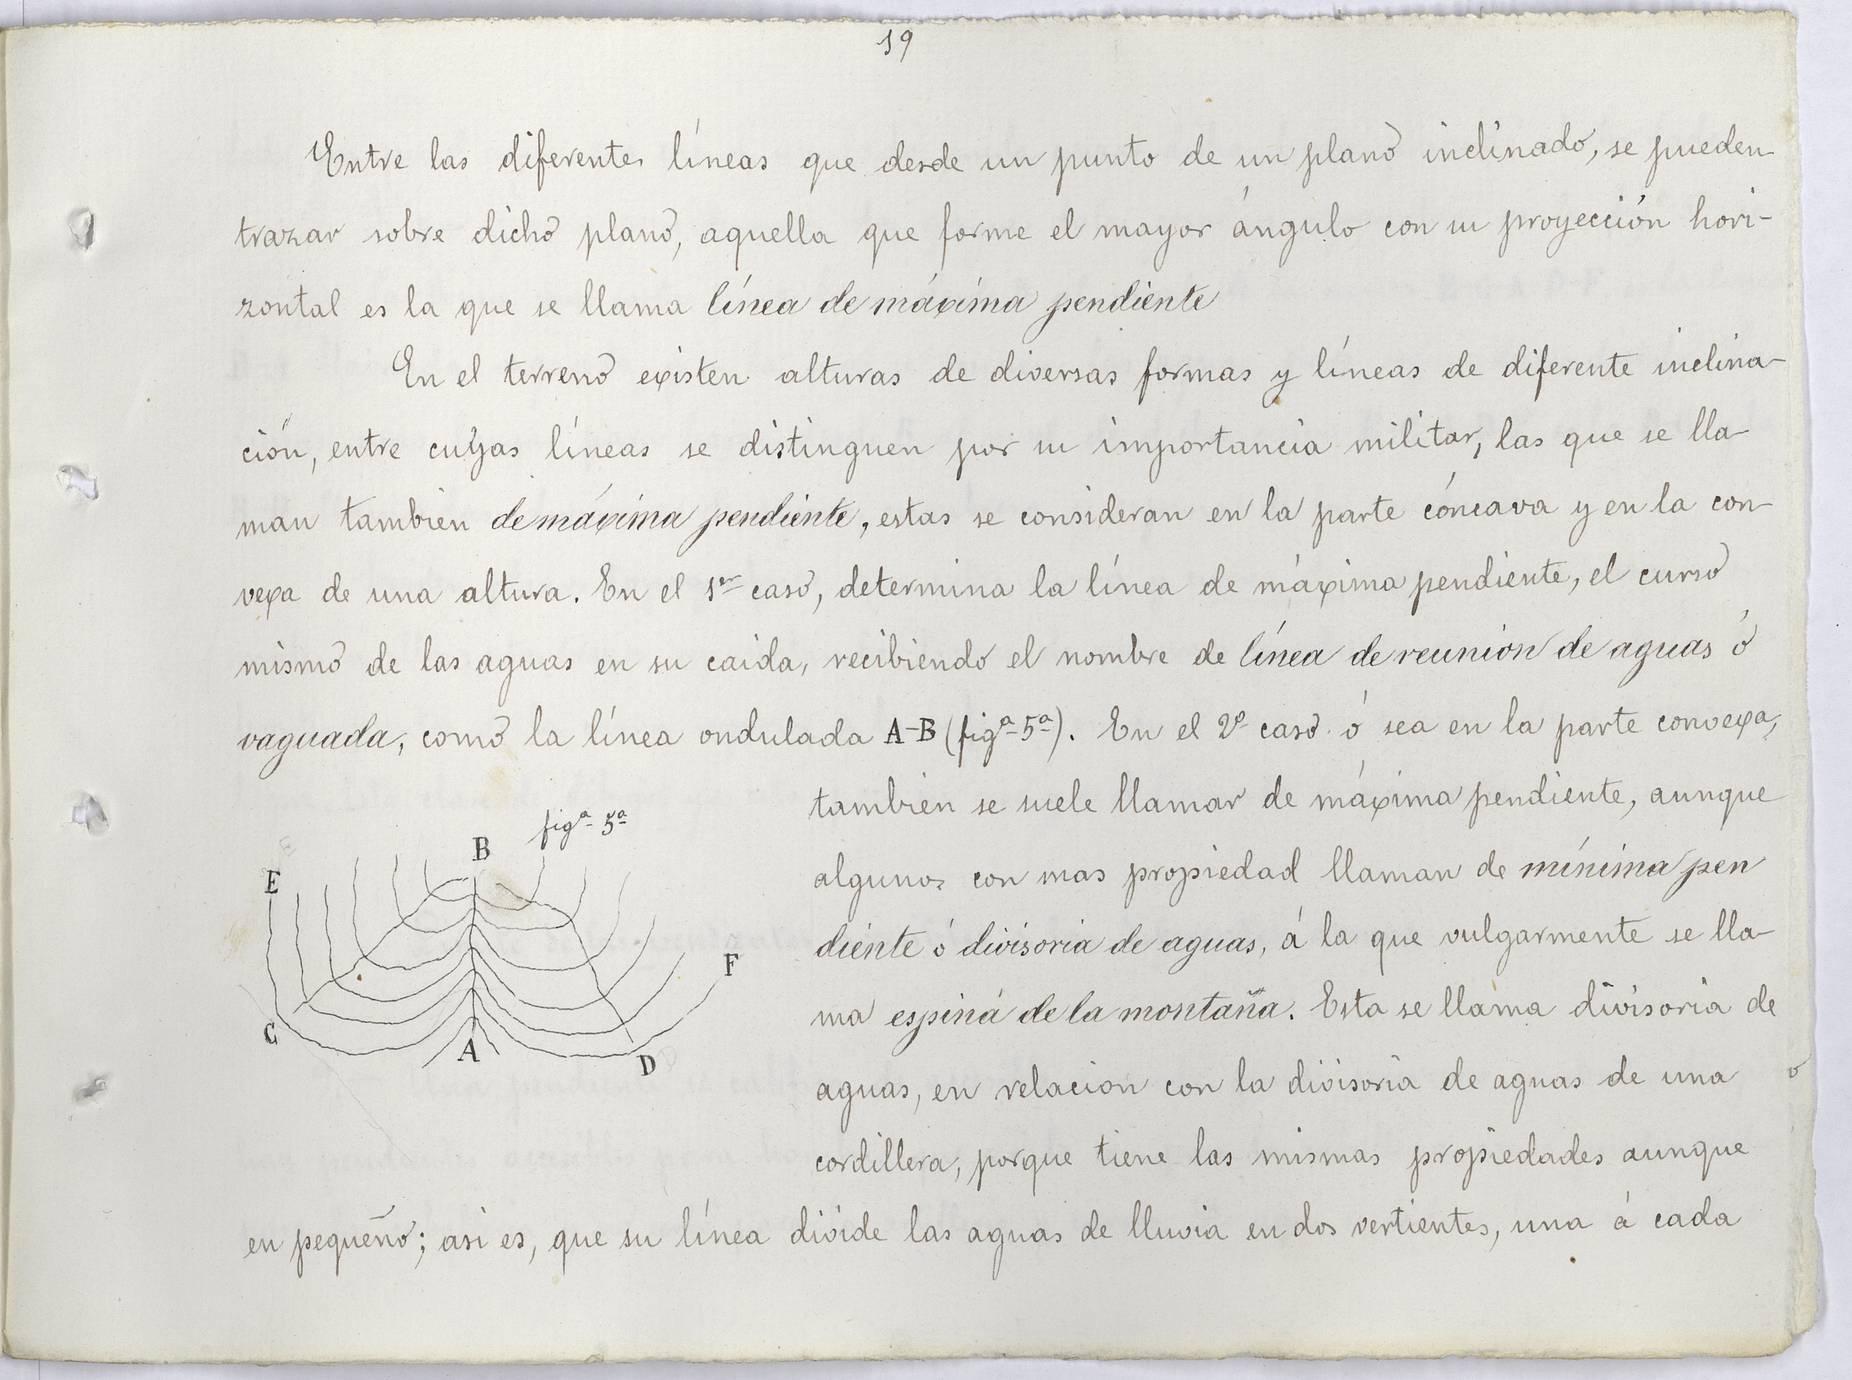 19
Entre las diferentes líneas que desde un punto de un plano inclinado, se pueden
trazar sobre dicho plano, aquella que forme el mayor ángulo con su proyección hori-
zontal es la que se llama línea de máxima pendiente
En el terreno existen alturas de diversas formas y líneas de diferente inclina-
ción, entre cuyas líneas se distinguen por su importancia militar, las que se lla-
man tambien de máxima pendiente, estas se consideran en la parte cóncava y en la con-
vexa de una altura. En el 1er caso, determina la línea de máxima pendiente, el curso
mismo de las aguas en su caida, recibiendo el nombre de línea de reunión de aguas ó
vaguada, como la línea ondulada A-B (figª 5ª). En el 2º caso ó sea en la parte convexa,
tambien se suele llamar de máxima pendiente, aunque
algunos con mas propiedad llaman de mínima pen
diente ó divisoria de aguas, á la que vulgarmente se lla-
ma espina de la montaña. Esta se llama divisoria de
aguas, en relacion con la divisoria de aguas de una
cordillera, porque tiene las mismas propiedades aunque
en pequeño; asi es, que su línea divide las aguas de lluvia en dos vertientes, una á cada
figª 5ª
B
E
F
C
A
D